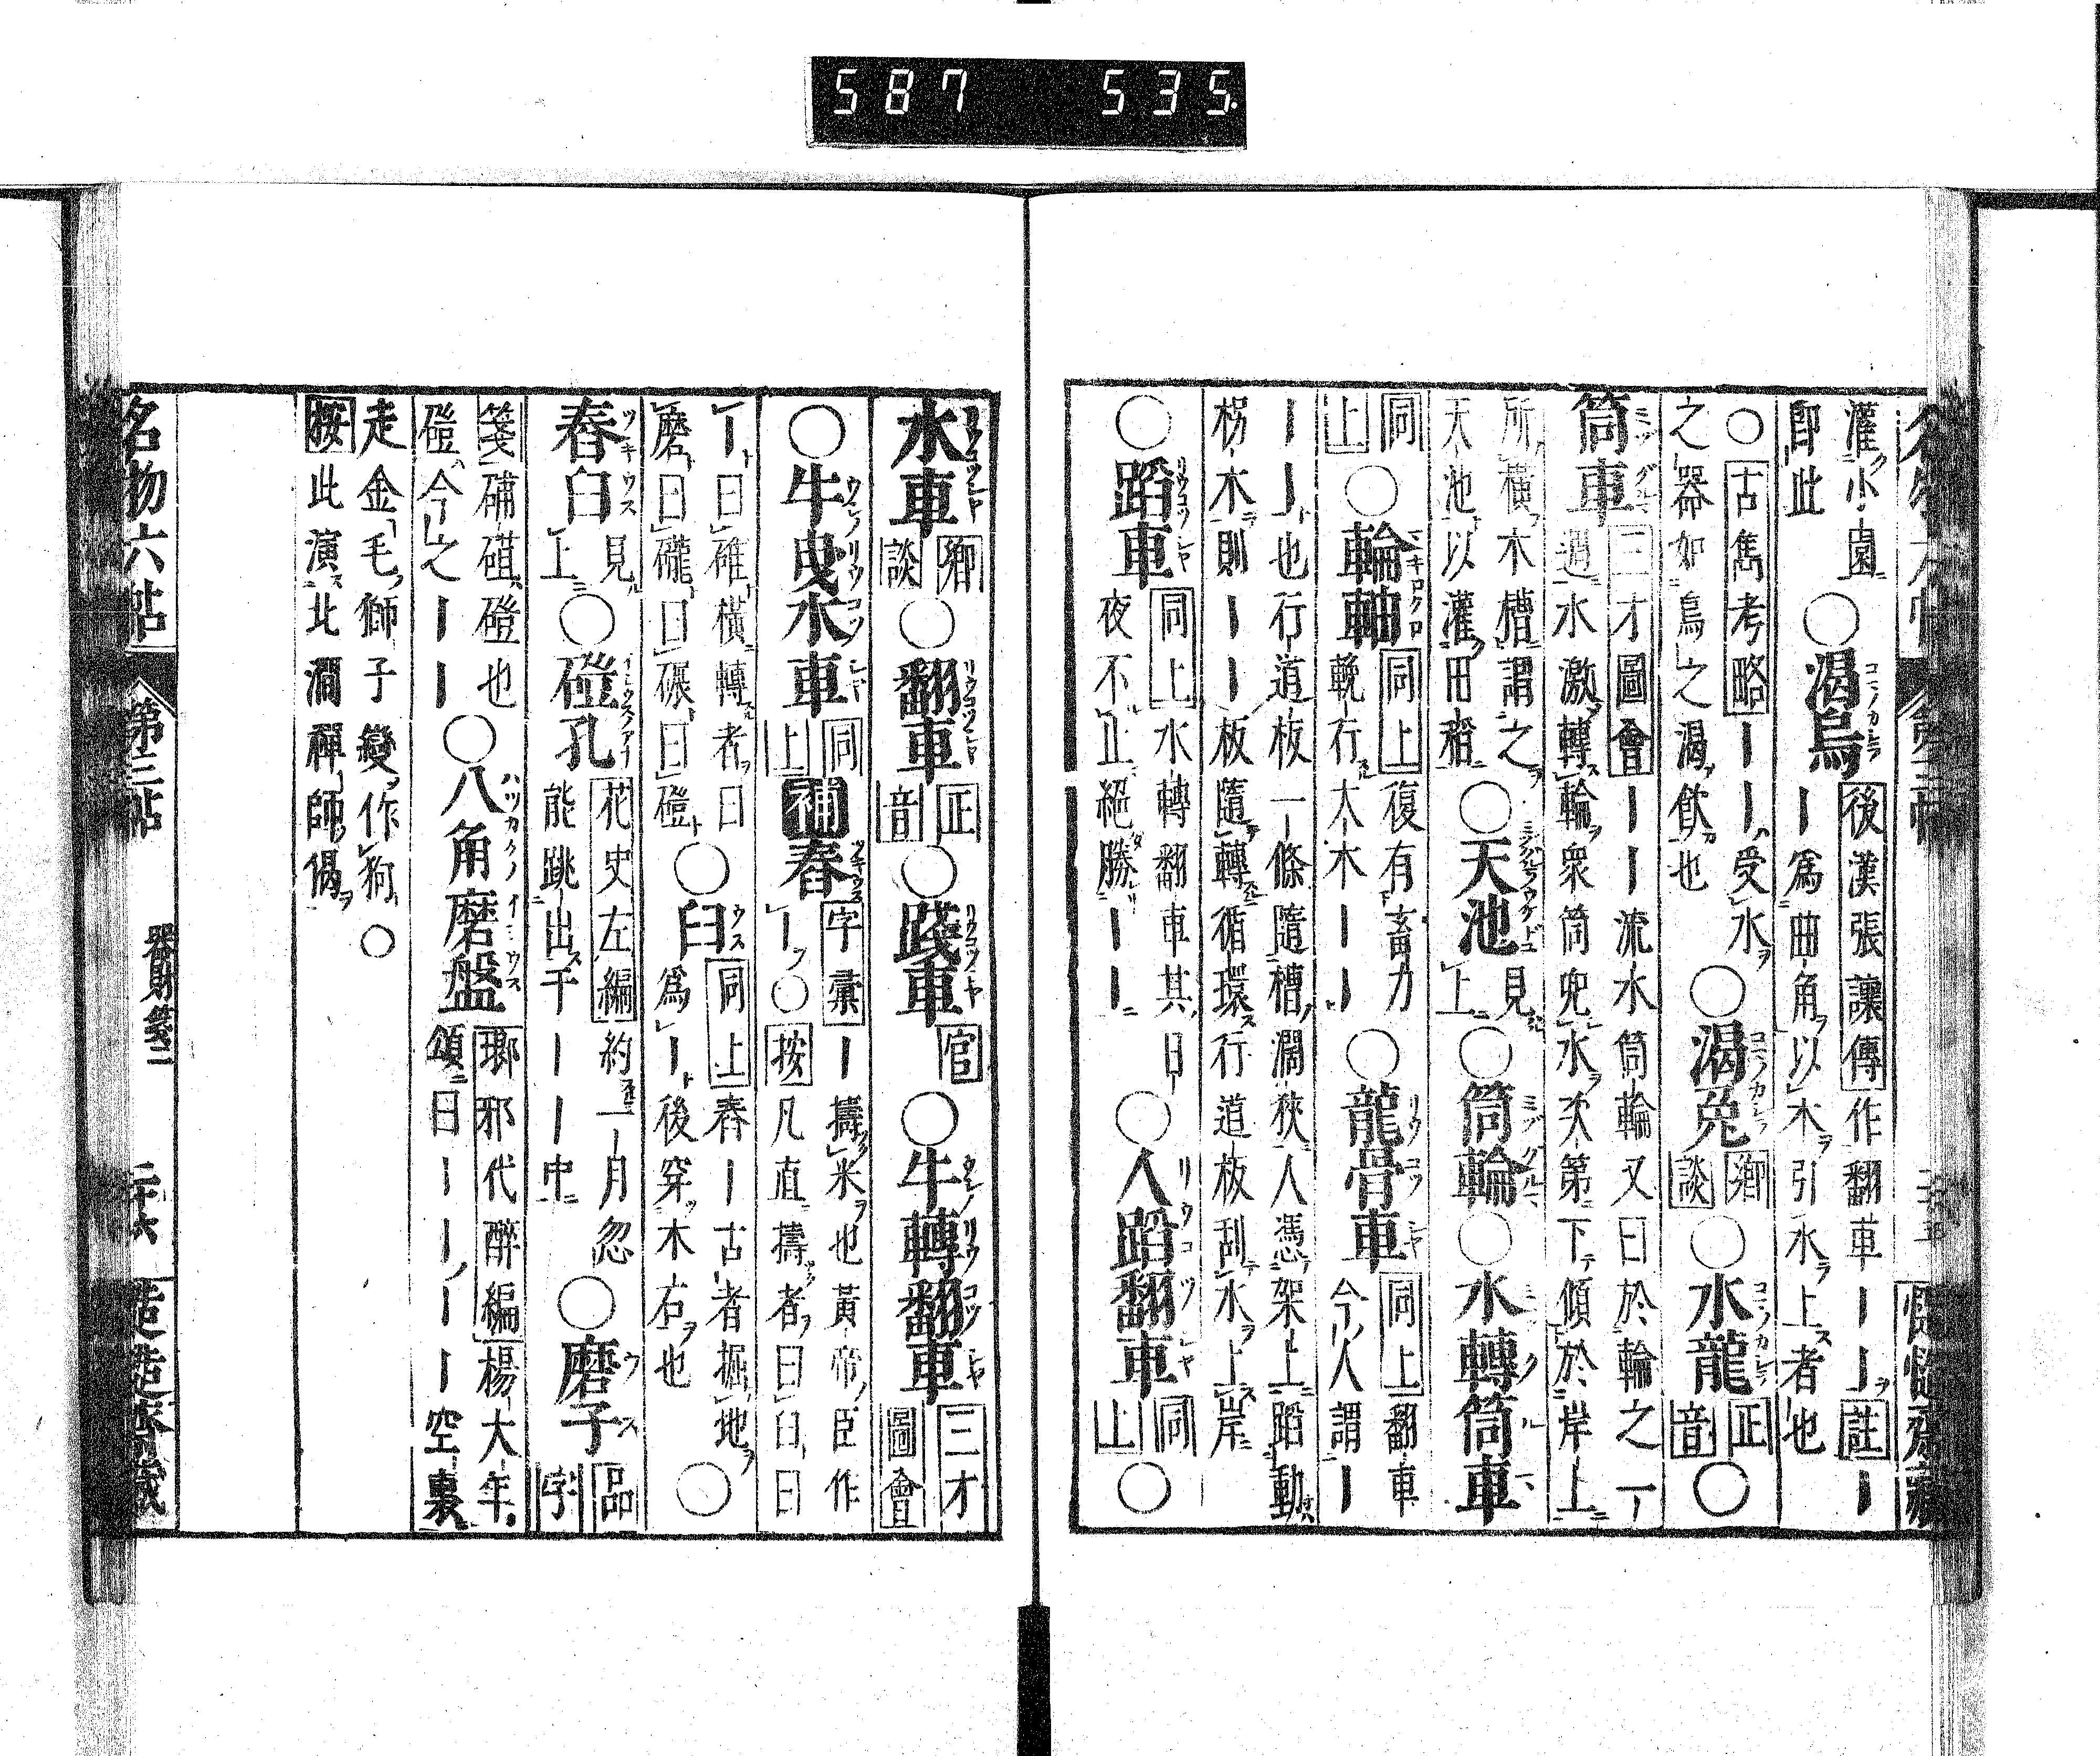 587 535.
灌小園即此○渴烏後漢張讓傳作翻車ーー註ーー為曲角以木引水上者也
○古雋考略ーー受水之器如烏之渴飲也○渴兔鄉談○水龍正音○
筒車三才圖會ーー流水筒輪又曰於輪之一週水激轉輪眾筒兜水次第下傾於岸上
所橫木槽謂之天池以灌田稻○天池見上○筒輪○水轉筒車
同上○輪軸同上復有畜力輓行大木ーー○龍骨車同上翻車今人謂ー
ーー也行道板一條隨槽濶狹人憑架上踏動拐木則ーー板隨轉循環行道板刮水上岸
○蹈車同上水轉翻車其日夜不止絕勝ーー○人蹈翻車同上○
水車鄉談○翻車正音○踐車官○牛轉翻車三才圖會
○牛曳水車同上補舂字彙ー擣米也黃帝臣作ー○按凡直擣者曰臼曰
ー曰碓橫轉者曰磨曰礲曰碾曰磑○臼同上舂ー古者掘地為ー後穿木石也○
舂臼見上○磑孔花史左編約一月忽能跳出于ーー中○磨子品字
箋碡碌磑也磑今之ーー○八角磨盤瑯邪代醉編楊大年頌曰ーーーー空裏
走金毛獅子變作狗○
按此演北澗禪師偈
名物六帖 第三帖 器財箋二 二十六